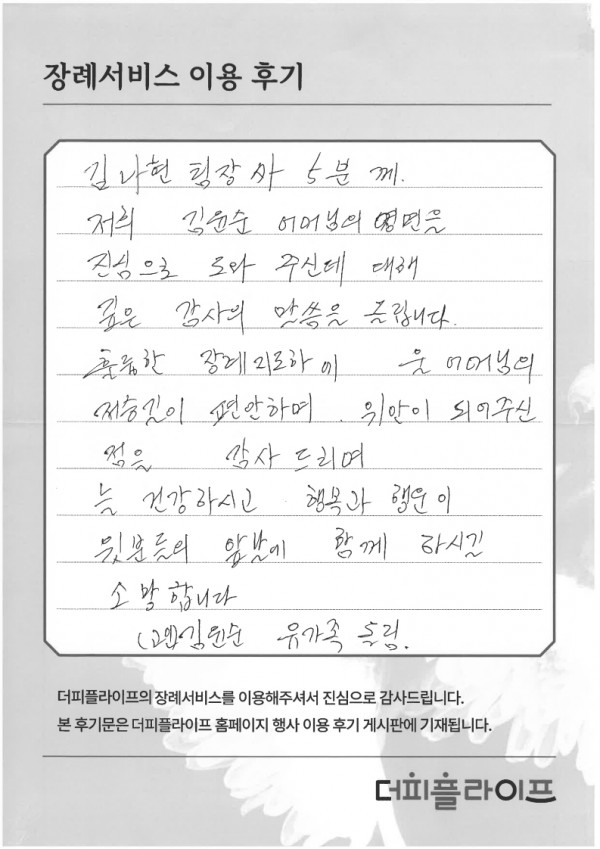 장례서비스 이용 후기
김나현 팀장 外 5분 께.
저희 김윤순 어머님의 영면을
진심으로 도와 주신데 대해
깊은 감사의 말씀을 드립니다.
훌륭한 장례지도하에 어머님의
저승길이 편안하며. 위안이 되어주신
점을 감사드리며
늘 건강하시고 행복과 행운이
윗분들의 앞날에 함께 하시길
소망합니다
김윤순 유가족 드림.
더피플라이프의 장례서비스를 이용해주셔서 진심으로 감사드립니다.
본 후기문은 더피플라이프 홈페이지 행사 이용 후기 게시판에 기재됩니다.
더피플라이프